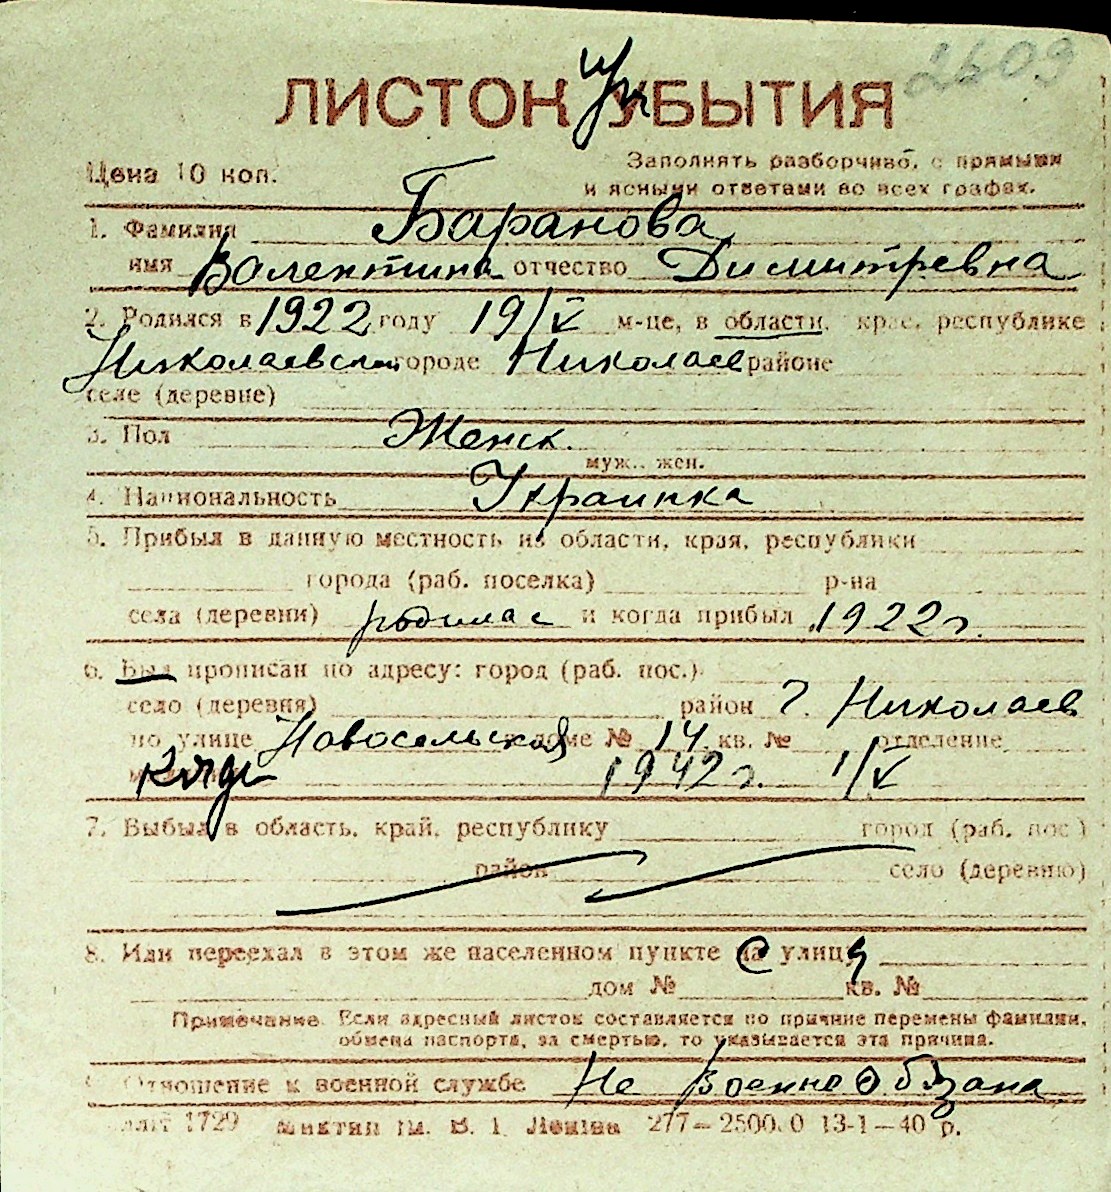 2609
ЛИСТОК УБЫТИЯ
Цена 10 коп.
Заполнять разборчиво, с прямыми
и ясными ответами во всех графах.
1. Фамилия Баранова
имя Валентина отчество Димитревна
2. Родился в 1922 году 19/V м-це, в области, крае, республике
Николаевск. городе Николаев районе
селе (деревне)
3. Пол Женск.
муж., жен.
4. Национальность Украинка
5. Прибыл в данную местность из области, края, республики
города (раб. поселка) р-на
села (деревни) родилас и когда прибыл 1922 г.
6. Был прописан по адресу: город (раб. пос.)
село (деревня) район г. Николаев
по улице Новосельская доме № 14 кв. № отделение
1942 г. 1/V
7. Выбыл в область, край, республику город (раб. пос.)
район село (деревню)
8. Или переехал в этом же населенном пункте с улицы
дом № кв. №
Примечание. Если адресный листок составляется по причине перемены фамилии,
обмена паспорта, за смертью, то указывается эта причина.
9. Отношение к военной службе Не военнообязана
1729 им. В. И. Ленина 277—2500.0 13-1—40 р.